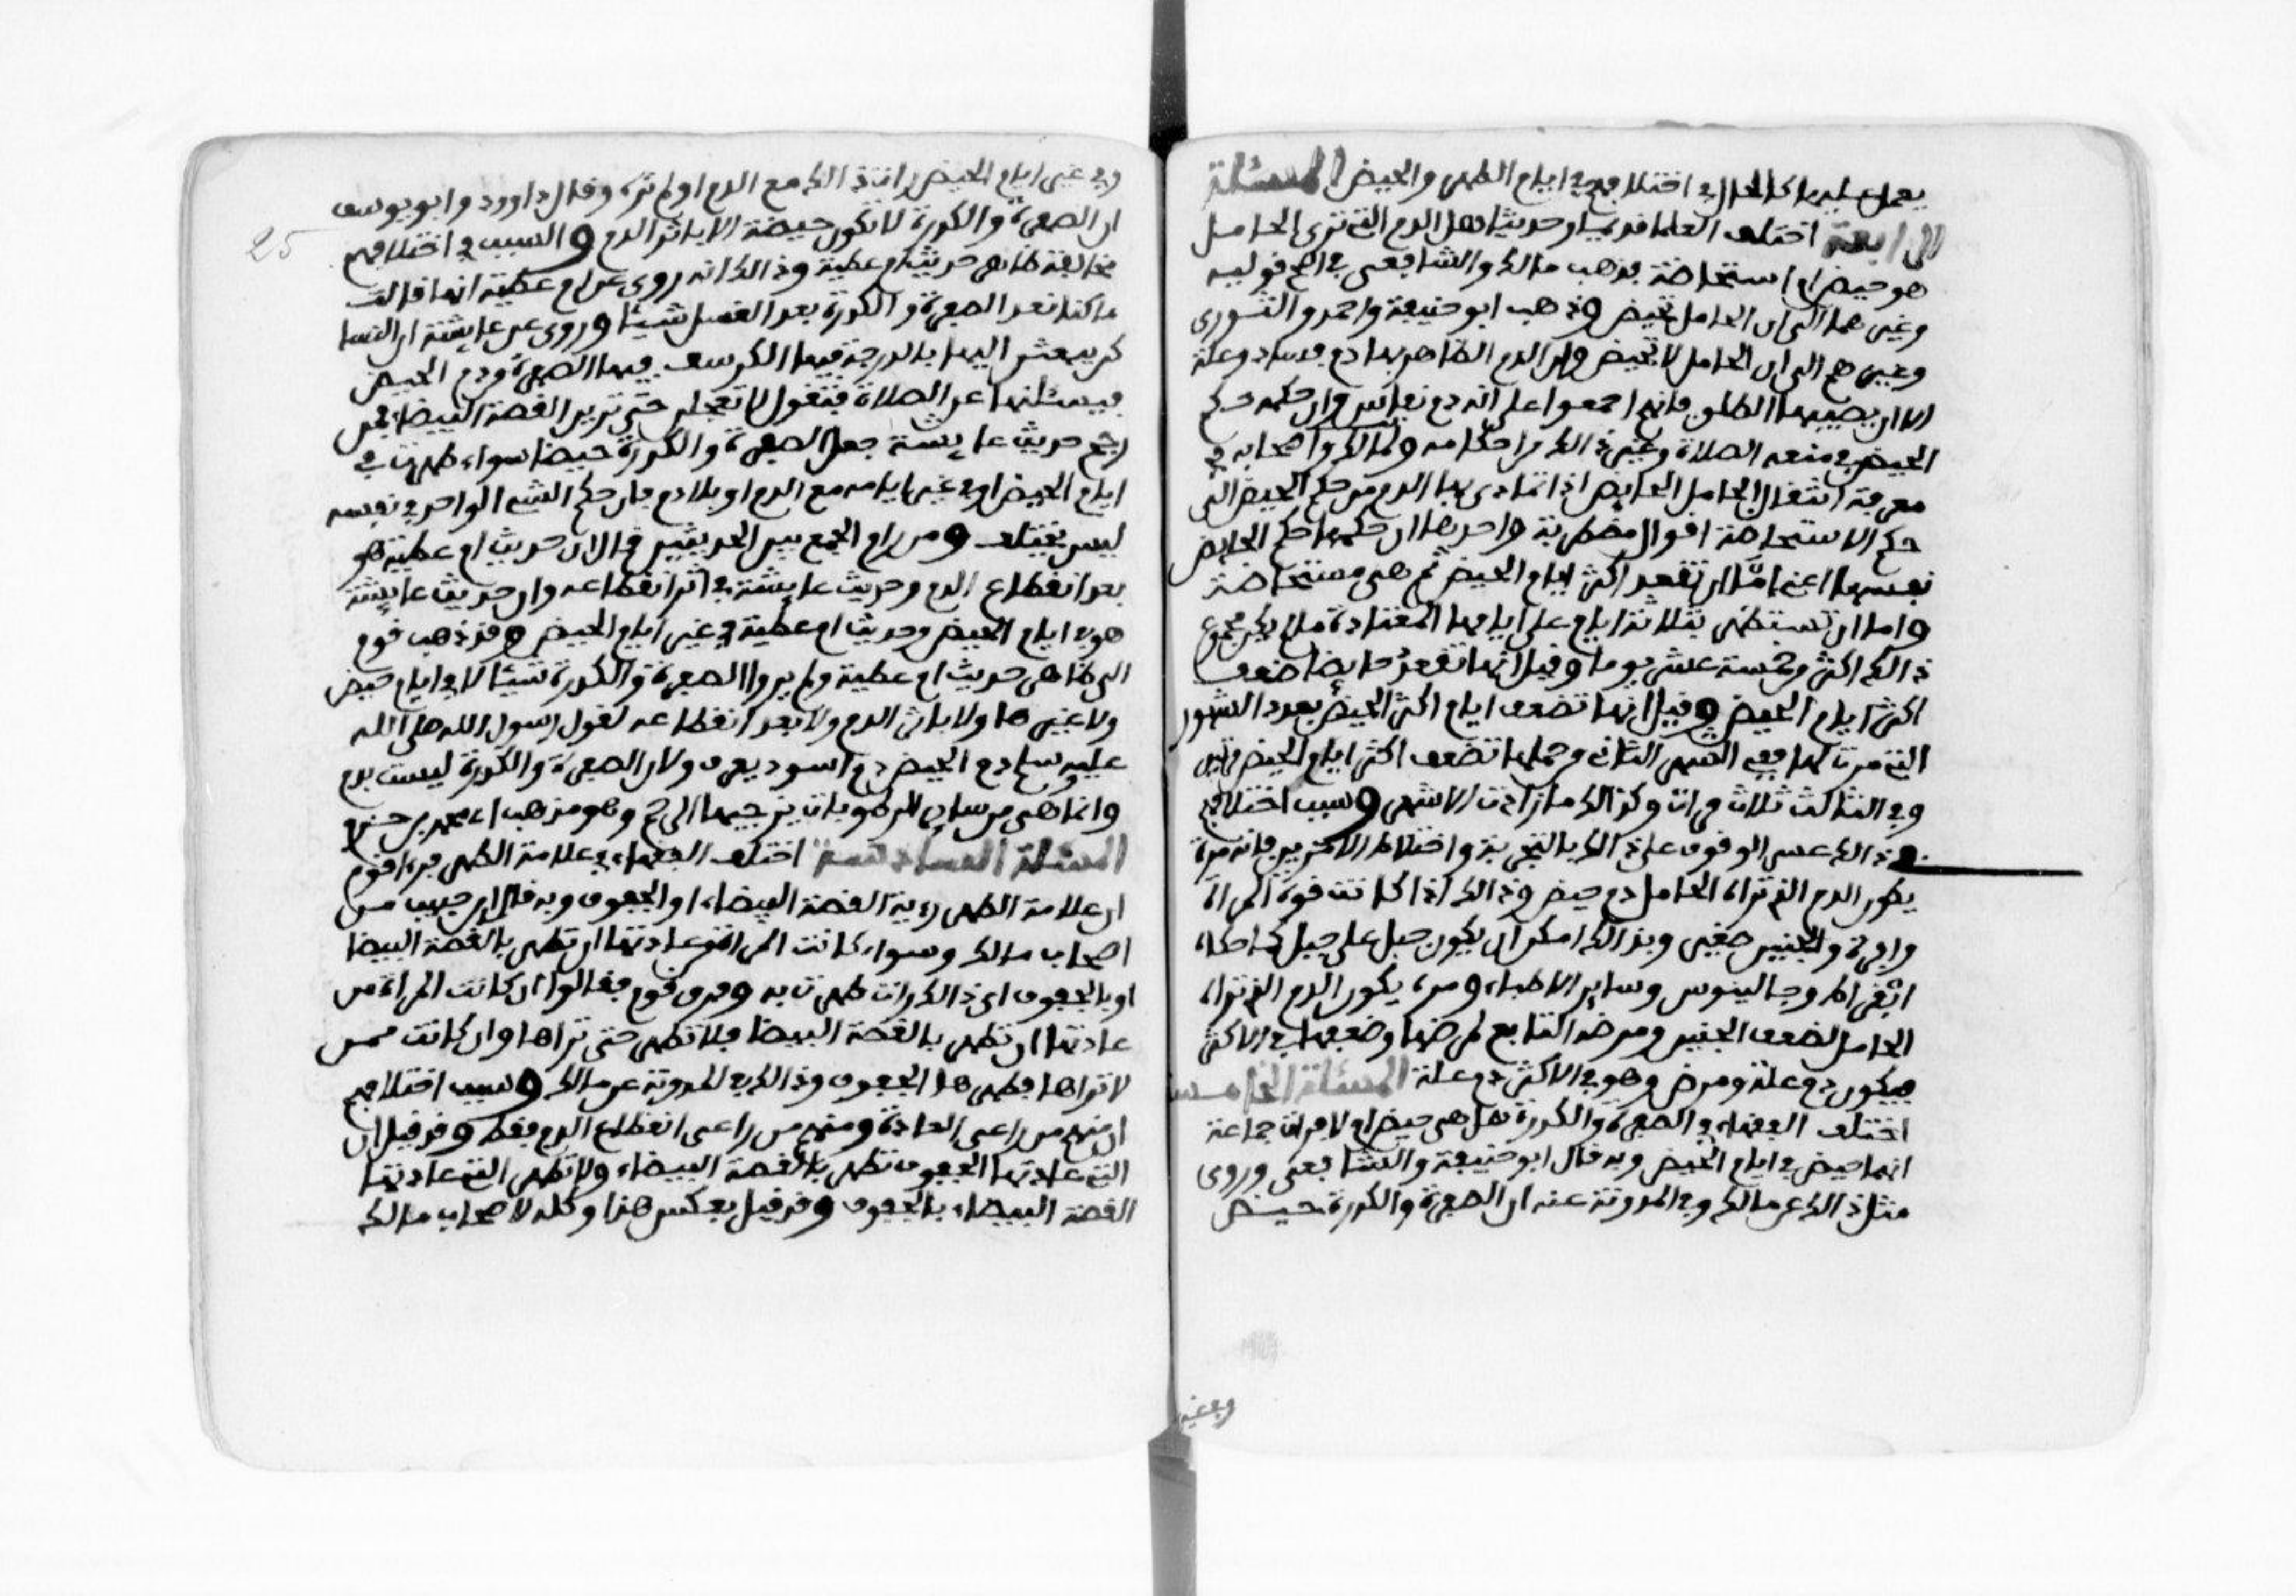 يعمل عليه هذا الحال في اختلافهم في ايام الطهر والحيض المسئلة
الرابعة اختلف العلما قديما وحديثا هل الدم التي ترى الحامل
هو حيض ام استحاضة فذهب مالك والشافعي في اصح قوليه
وغيرهما الى ان الحامل تحيض وذهب ابو حنيفة واحمد والثوري
وغيرهم الى ان الحامل لا تحيض وان الدم الظاهر بها دم فساد وعلة
الا ان يصيبها الطلق فانهم اجمعوا على انه دم نفاس وان حكمه حكم
الحيض في منعه الصلاة وغير ذالك من احكامه ولمالك واصحابه في
معرفة انتقال الحامل الحايض اذا تمادى بها الدم من حكم الحيض الى
حكم الاستحاضة اقوال مضطربة واحدها ان حكمها حكم الحايض
نفسها اعني امّا ان تقعد اكثر ايام الحيض ثم هي مستحاضة
واما ان تستظهر بثلاثة ايام على ايامها المعتادة ما لم يكن مجموع
ذالك اكثر من خمسة عشر يوما وقيل انها تقعد حايضا ضعف
اكثر ايام الحيض وقيل انها تضعف ايام اكثر الحيض بعدد الشهور
التي مرت لها ففي الشهر الثاني من حملها تضعف اكثر ايام الحيض مرتين
وفي الثالث ثلاث مرات وكذالك ما زادت الاشهر وسبب اختلافهم
في ذالك عسر الوقوف على ذالك بالتجربة واختلاط الامرين فانه مرة
يكون الدم الذي تراه الحامل دم حيض وذالك اذا كانت قوة المراة
وافرة والجنين صغير وبذالك امكن ان يكون حبل على حبل كما حكاه
ابقراط وجالينوس وساير الاطباء ومرة يكون الدم الذي تراه
الحامل لضعف الجنين ومرضه التابع لمرضها وضعفها في الاكثر
فيكون دم علة ومرض وهو في الاكثر دم علة المسئلة الخامسة
اختلف الفقهاء في الصفرة والكدرة هل هي حيض ام لا فرات جماعة
انها حيض في ايام الحيض وبه قال ابو حنيفة والشافعي وروى
مثل ذالك عن مالك وفي المدونة عنه ان الصفرة والكدرة حيض
وفي غير
وفي غير ايام الحيض رات ذالك مع الدم او لم تره وقال داوود وابو يوسف
ان الصفرة والكدرة لا تكون حيضة الا باثر الدم والسبب في اختلافهم
مخالفة ظاهر حديث ام عطية وذالك انه روى عن ام عطية انها قالت
ما كنا نعد الصفرة والكدرة بعد الغسل شيئا وروى عن عايشة ان النسا
كن يبعثن اليها بالدرجة فيها الكرسف فيها الصفرة ودم الحيض
فيسئلنها عن الصلاة فتقول لا تعجلن حتى ترين القصة البيضاء فمن
رجح حديث عايشة جعل الصفرة والكدرة حيضا سواء ظهرت في
ايام الحيض او في غير ايامه مع الدم او بلا دم فان حكم الشيء الواحد في نفسه
ليس يختلف ومن رام الجمع بين الحديثين قال ان حديث ام عطية هو
بعد انقطاع الدم وحديث عايشة في اثر انقطاعه وان حديث عايشة
هو في ايام الحيض وحديث ام عطية في غير ايام الحيض وقد ذهب قوم
الى ظاهر حديث ام عطية ولم يروا الصفرة والكدرة شيئا لا في ايام حيض
ولا غيرها ولا باثر الدم ولا بعد انقطاعه لقول رسول الله صلى الله
عليه وسلم دم الحيض دم اسود يعرف ولان الصفرة والكدرة ليست بدم
وانما هي من ساير الرطوبات يرخيها الرحم وهو مذهب ابي محمد بن حزم
المسئلة السادسة اختلف الفقهاء في علامة الطهر فراى قوم
ان علامة الطهر روية القصة البيضاء او الجفوف وبه قال ابن حبيب من
اصحاب مالك وسواء كانت المراة عادتها ان تطهر بالقصة البيضا
او بالجفوف اي ذالك رات طهرت به وفرق قوم فقالوا ان كانت المراة من
عادتها ان تطهر بالقصة البيضا فلا تطهر حتى تراها وان كانت ممن
لا تراها فطهرها الجفوف وذالك في المدونة عن مالك وسبب اختلافهم
ان منهم من راعى العادة ومنهم من راعى انقطاع الدم فقط وقد قيل ان
التي عادتها الجفوف تطهر بالقصة البيضاء ولا تطهر التي عادتها
القصة البيضاء بالجفوف وقد قيل بعكس هذا وكله لاصحاب مالك
25